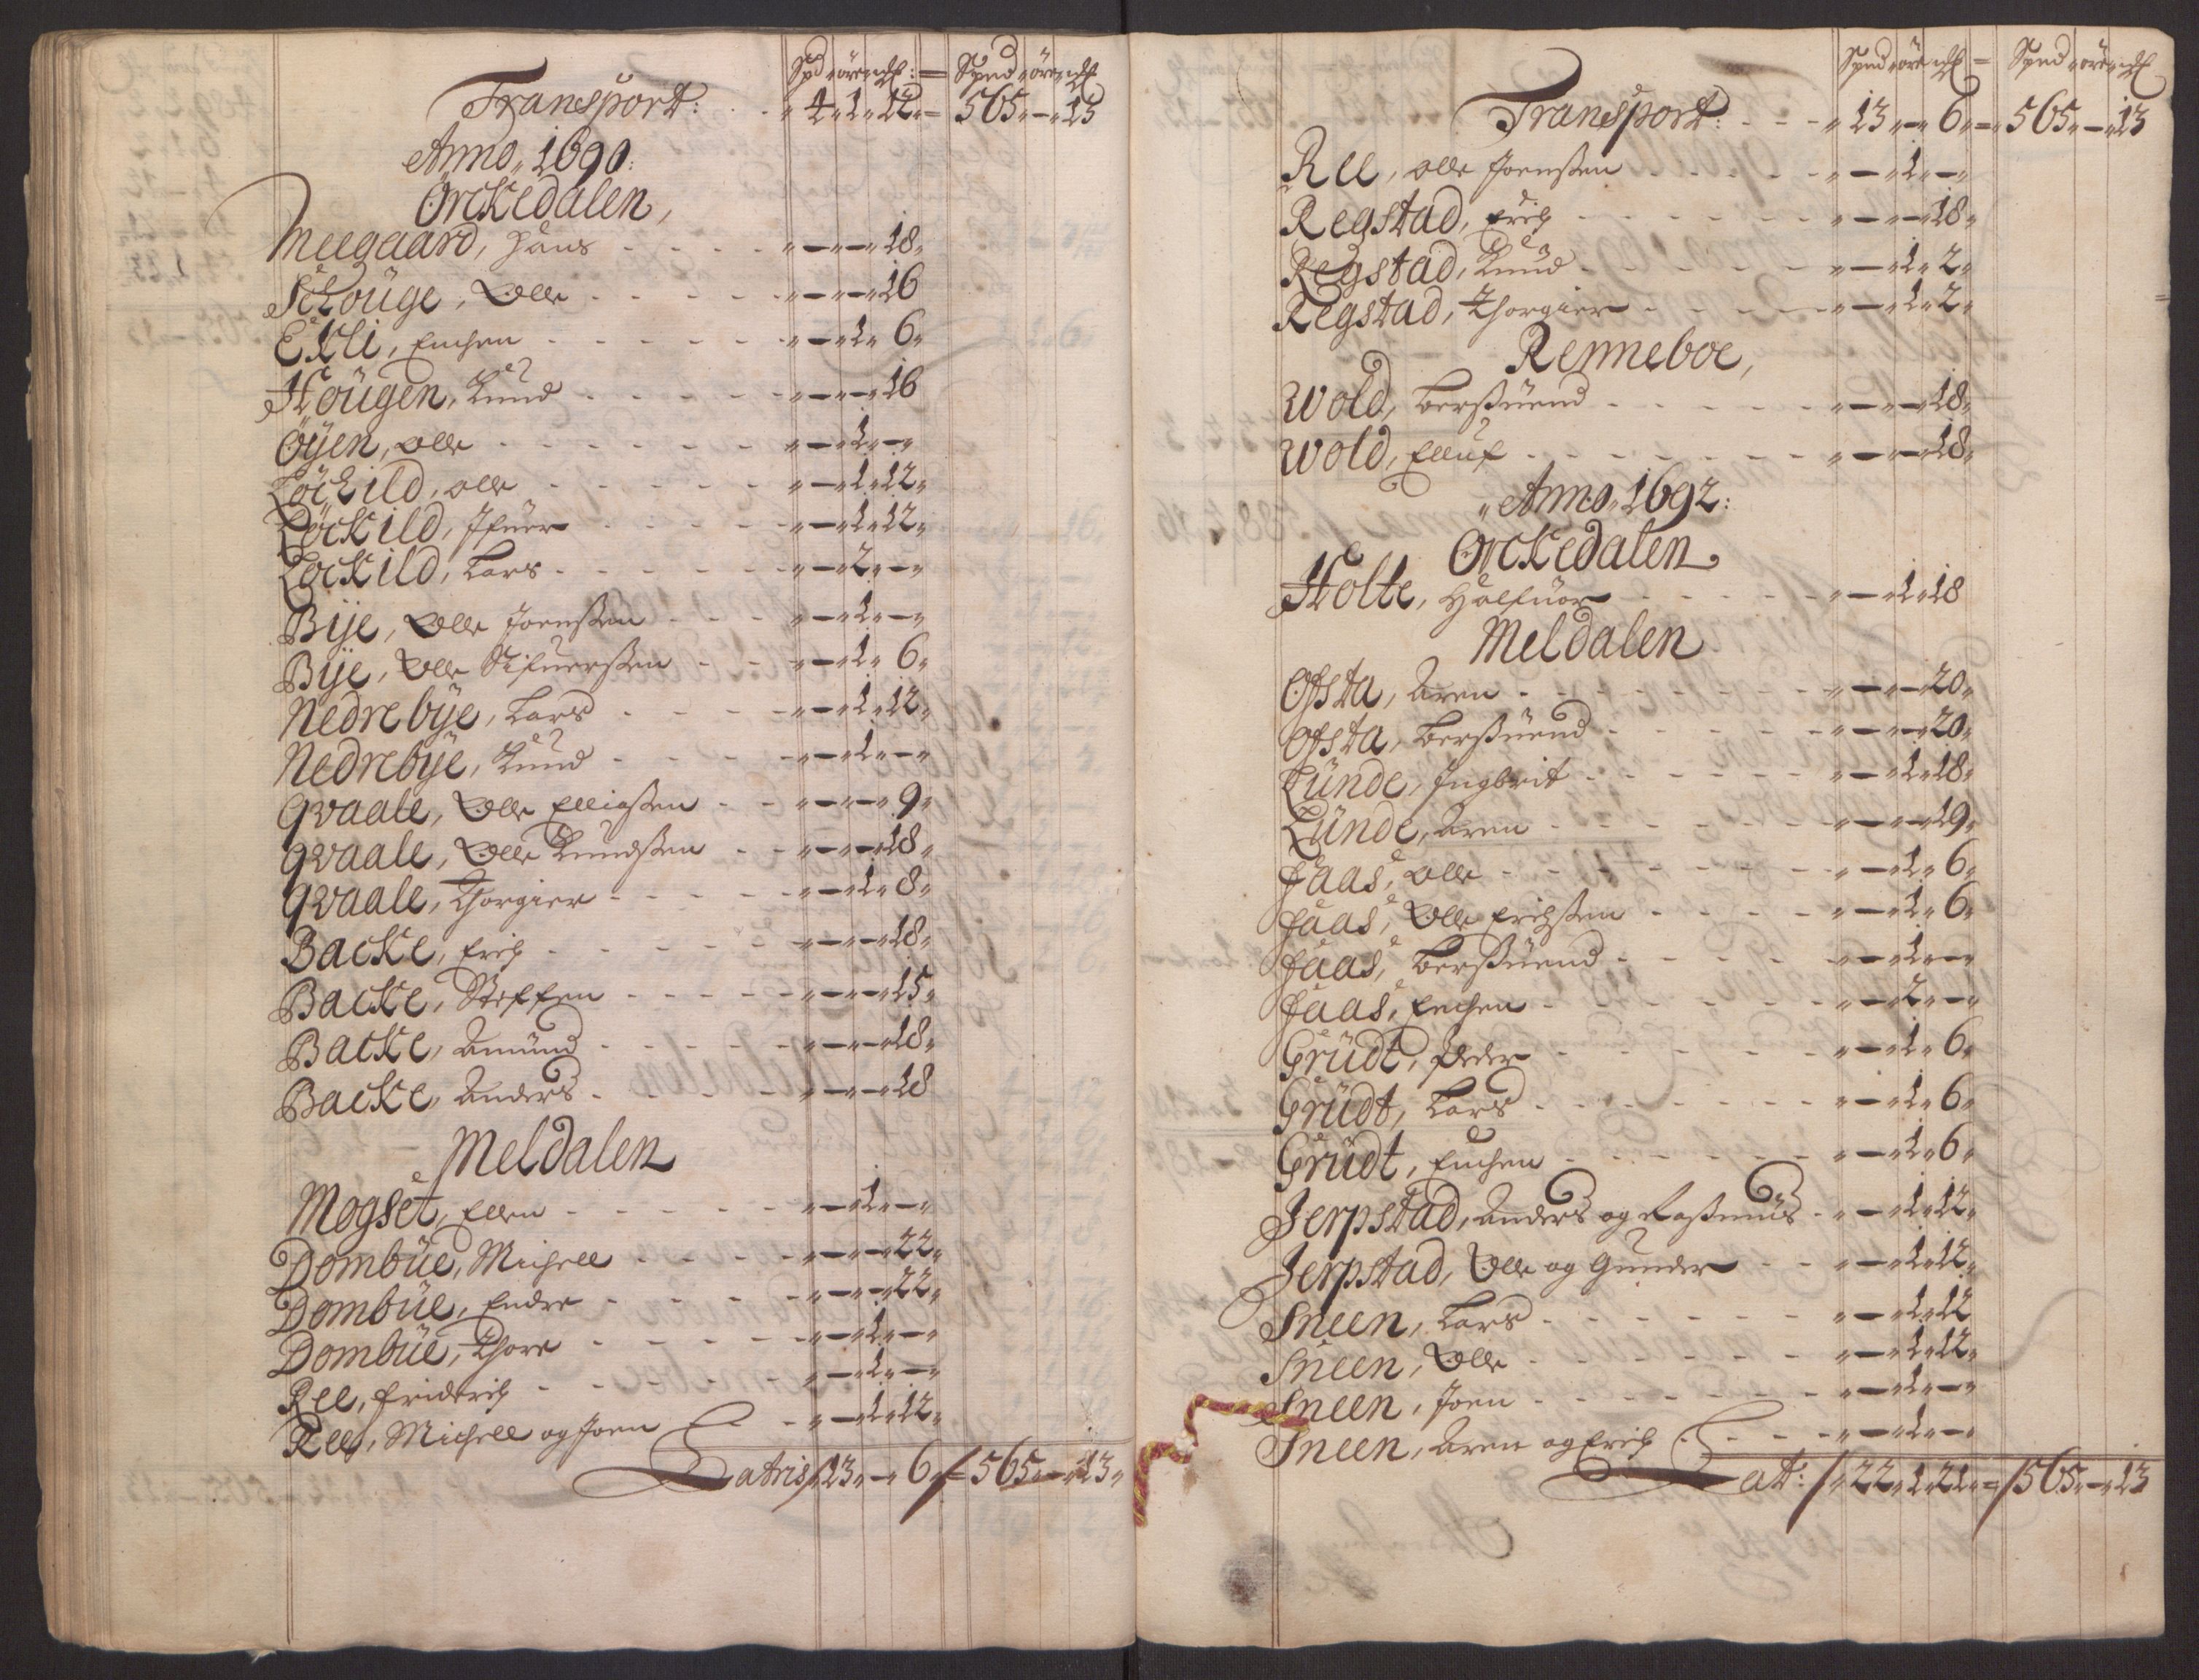 Spd „ öre „ = Spnd „ öre „
Transport: . . „ 4 „ 1 „ 12 „ = 565 „ — „ 13
Anno „ 1690:
Örckedalen,
Meegaard, Hans - - - - „ — „ — „ 18 „
Schouge, Olle - - - - „ — „ — „ 16
Ekli, Enchen - - - - - „ — „ 1 „ 6 „
Hougen, Knud - - - - „ — „ — „ 16
Öyen, Olle - - - - - „ — „ 1 „ — „
Löckild, Olle - - - - „ — „ 1 „ 12 „
Löckild, Ifuer - - - - „ — „ 1 „ 12 „
Löckild, Lars - - - - „ — „ 2 „ — „
Bije, Olle Joenßen - - - „ — „ 1 „ — „
Bije, Olle Sifuerßen - - „ — „ 1 „ 6 „
Nedrebije, Lars - - - „ — „ 1 „ 12 „
Nedrebije, Knud - - - „ — „ 1 „ — „
Qvaale, Olle Elliaßen - - „ — „ — „ 9 „
Qvaale, Olle Knudßen - - „ — „ — „ 18 „
Qvaale, Thorgier - - - - „ — „ 1 „ 8 „
Backe, Erich - - - - - „ — „ — „ 18 „
Backe, Steffen - - - - „ — „ — „ 15 „
Backe, Amund - - - - „ — „ — „ 18 „
Backe, Anders - - - - „ — „ — „ 18
Meldalen
Mogset, Ellen - - - - - „ — „ 1 „ — „
Dombüe, Michell - - - - „ — „ — „ 22 „
Dombüe, Endre - - - - „ — „ — „ 22 „
Dombüe, Thore - - - - „ — „ 1 „ — „
Ree, Friderich - - - - - „ — „ 1 „ — „
Ree, Michell og Joen - - „ — „ 1 „ 12 „
Latris / 13 „ — „ 6 „ / = 565 „ — „ 13 „
Spnd „ öre „ = Spnd „ öre „
Transport: - - - „ 13 „ — „ 6 „ = „ 565 „ — „ 13
Ree, Olle Joenßen - - - - - „ — „ 1 „ — „
Regstad, Erich - - - - - - „ — „ — „ 18 „
Regstad, Knud - - - - - - „ — „ 1 „ 2 „
Regstad, Thorgier - - - - - „ — „ 1 „ 2 „
Renneboe,
Wold, Berßuend - - - - - „ — „ — „ 18 „
Wold, Elluf - - - - - - - „ — „ — „ 18 „
„ Anno „ 1692:
Orckedalen
Holte, Halfuor - - - - - „ — „ 1 „ 18
Meldalen
Ofsta, Aren - - - - - - - „ — „ — „ 20 „
Ofsta, Berßuend - - - - - „ — „ — „ 20 „
Lünde, Ingbrit - - - - - - „ — „ 1 „ 18 „
Lünde, Aren - - - - - - - „ — „ — „ 19 „
Faas, Olle - - - - - - - „ — „ 1 „ 6 „
Faas, Olle Erichßen - - - - „ — „ 1 „ 6 „
Faas, Berßuend - - - - - „ — „ 1 „ — „
Faas, Enchen - - - - - - „ — „ 2 „ — „
Grüdt, Peder - - - - - - „ — „ 1 „ 6 „
Grüdt, Lars - - - - - - - „ — „ 1 „ 6 „
Grüdt, Enchen - - - - - - „ — „ 1 „ 6 „
Jerpstad, Anders og Raßmus - „ — „ 1 „ 12 „
Jerpstad, Olle og Gunder - - „ — „ 1 „ 12 „
Sneen, Lars - - - - - - „ — „ 1 „ 12
Sneen, Olle - - - - - - „ — „ 1 „ 12 „
Sneen, Joen - - - - - - - „ — „ 1 „ — „
Sneen, Aren og Erich - - - - „ — „ 1 „ — „
Lat: / „ 22 „ 1 „ 21 „ = / 565 „ — „ 13